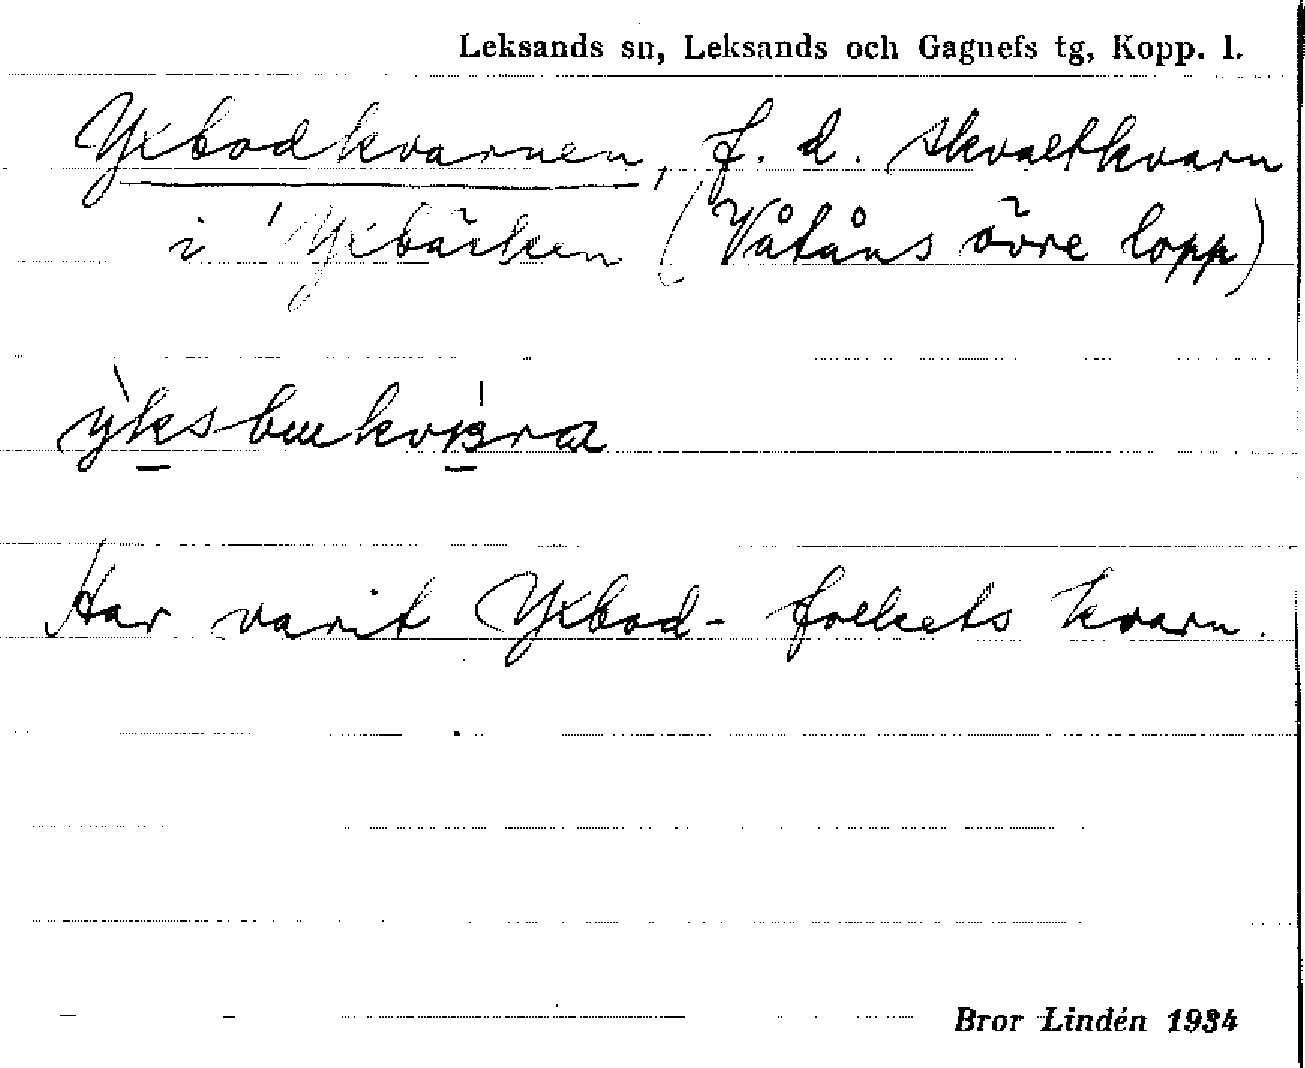 Leksands sn, Leksands och Gagnefs tg, Kopp. l.
Yxbodkvarnen, f. d. skvaltkvarn
i 'Yxbäcken (Våtåns övre lopp)
Har varit Yxbod- folkets kvarn.
Bror Lindén 1934